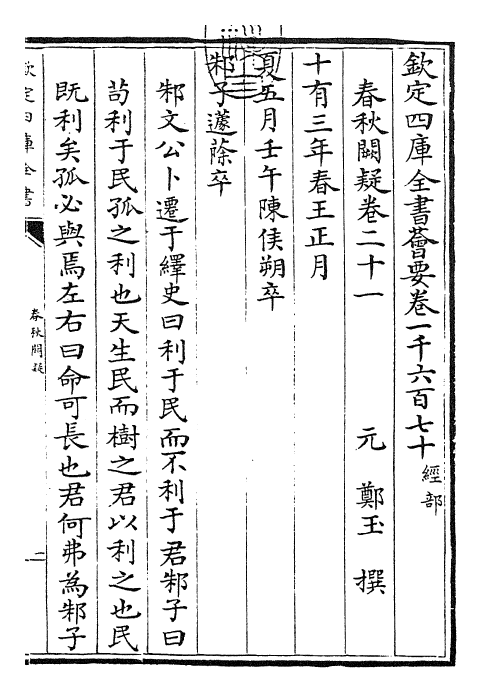 欽定四庫全書薈要卷一千六百七十 經部
春秋闕疑卷二十一 元 鄭玉 撰
十有三年春王正月
夏五月壬午陳侯朔卒
邾子蘧蒢卒
邾文公卜遷于繹史曰利于民而不利于君邾子曰
茍利于民孤之利也天生民而樹之君以利之也民
既利矣孤必與焉左右曰命可長也君何弗為邾子
欽定四庫全書
春秋闕疑
二